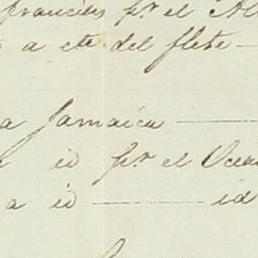 francies pr. el Al
a cte del flete
a Jamaica
id pr. el Ocea
a id id